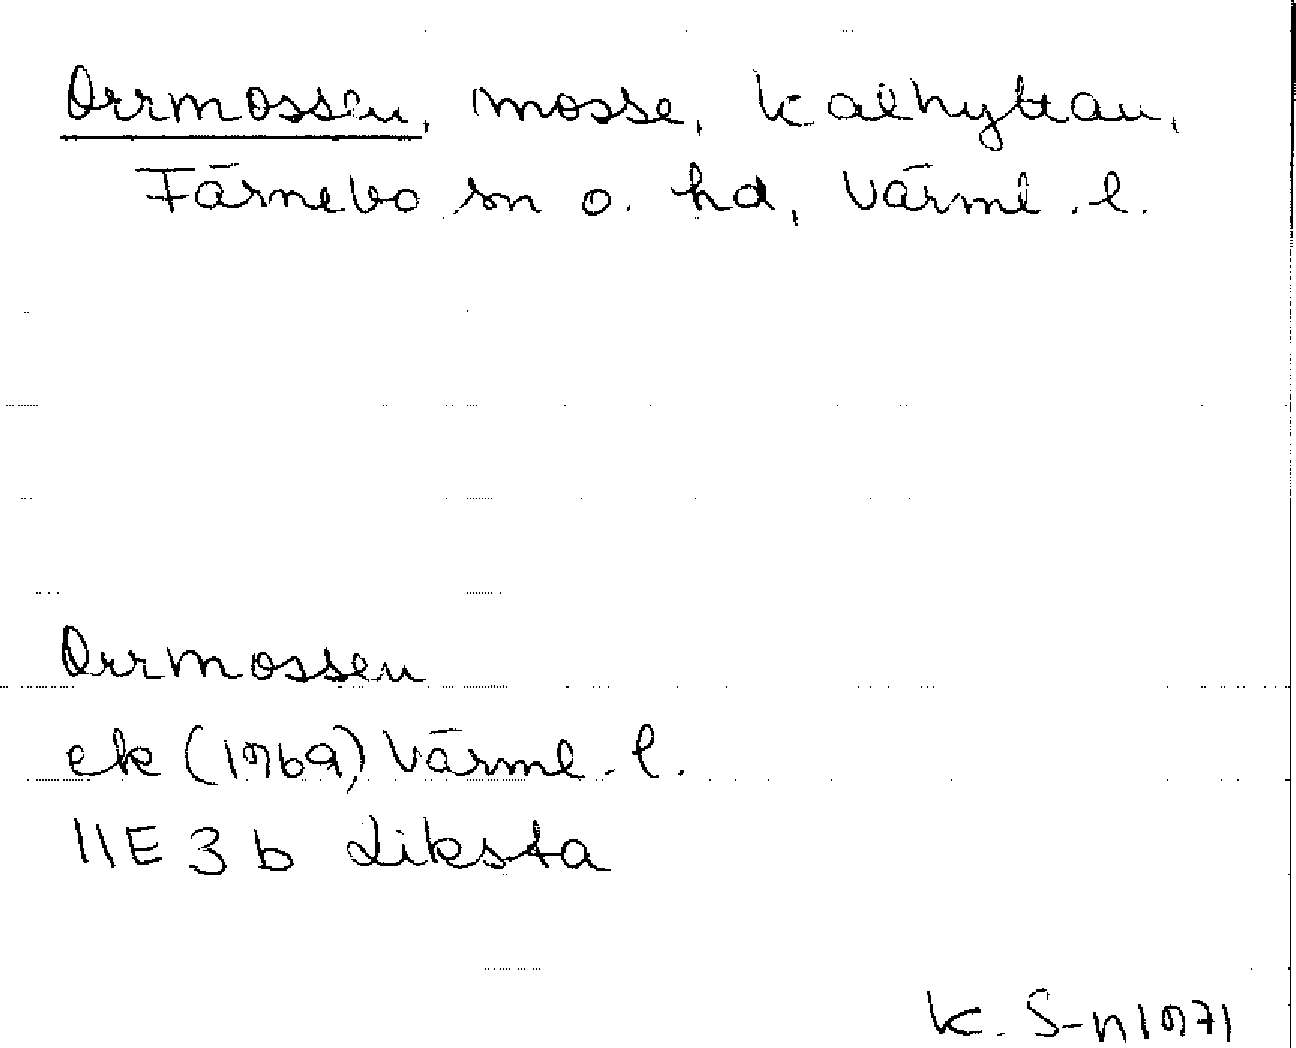 Orrmossen, mosse, Kalhyttan,
Färnebo sn o. hd, Värml. l.
Orrmossen
ek (1969) Värml. l.
11E 3 b Liksta
K. S-n 1971